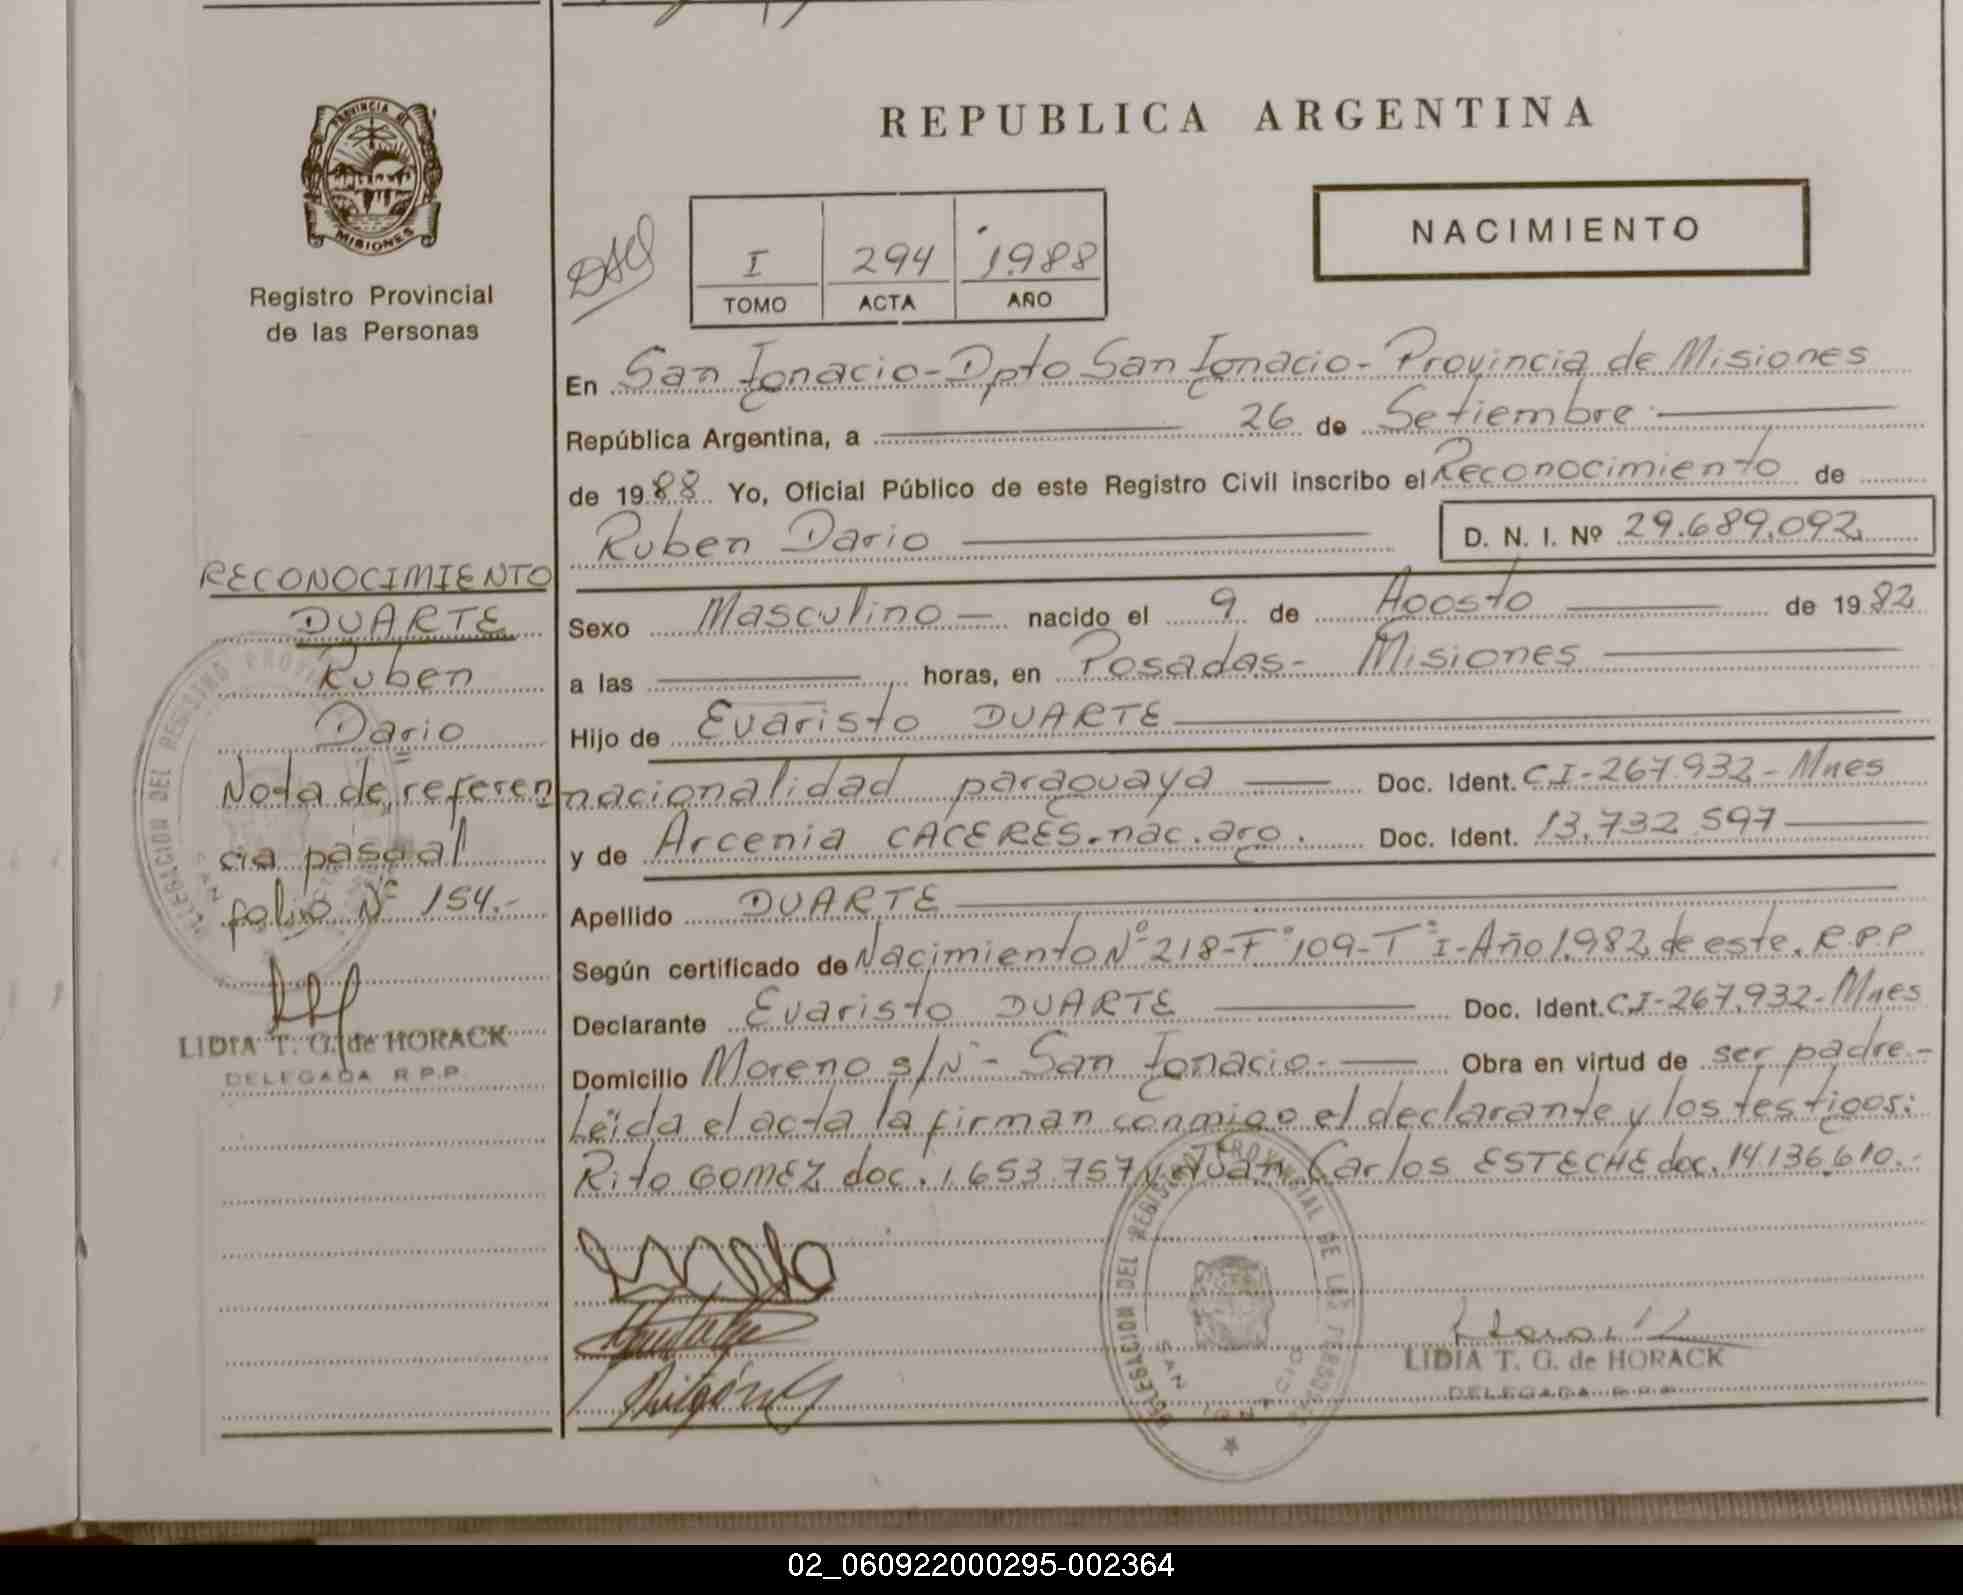 PROVINCIA DE
MISIONES
Registro Provincial
de las Personas
REPUBLICA ARGENTINA
NACIMIENTO
I 294 1988
TOMO ACTA AÑO
En San Ignacio-Dpto San Ignacio-Provincia de Misiones
República Argentina, a 26 de Setiembre
de 1988 Yo, Oficial Público de este Registro Civil inscribo el Reconocimiento de
Ruben Dario D. N. I. Nº 29.689.092
Sexo Masculino nacido el 9 de Agosto de 1982
a las horas, en Posadas- Misiones
Hijo de Evaristo DUARTE
nacionalidad paraguaya Doc. Ident. CI-267.932-Mnes
y de Arcenia CACERES.nac.arg. Doc. Ident. 13.732.597
Apellido DUARTE
Según certificado de Nacimiento Nº 218-Fº109-Tº I-Año 1.982 de este. R.P.P
Declarante Evaristo DUARTE Doc. Ident. CI-267.932-Mnes
Domicilio Moreno s/Nº- San Ignacio.- Obra en virtud de ser padre.-
Leída el acta la firman conmigo el declarante y los testigos:
Rito GOMEZ doc. 1.653.757 y Juan Carlos ESTECHE doc. 14.136.610.-
RECONOCIMIENTO
DUARTE
Ruben
Dario
Nota de referen
cia pasa al
folio Nº 154.-
LIDIA T. G. de HORACK
DELEGADA R.P.P.
DELEGACION DEL REGISTRO PROVINCIAL DE LAS PERSONAS
SAN IGNACIO
LIDIA T. G. de HORACK
DELEGADA R.P.P.
02_060922000295-002364